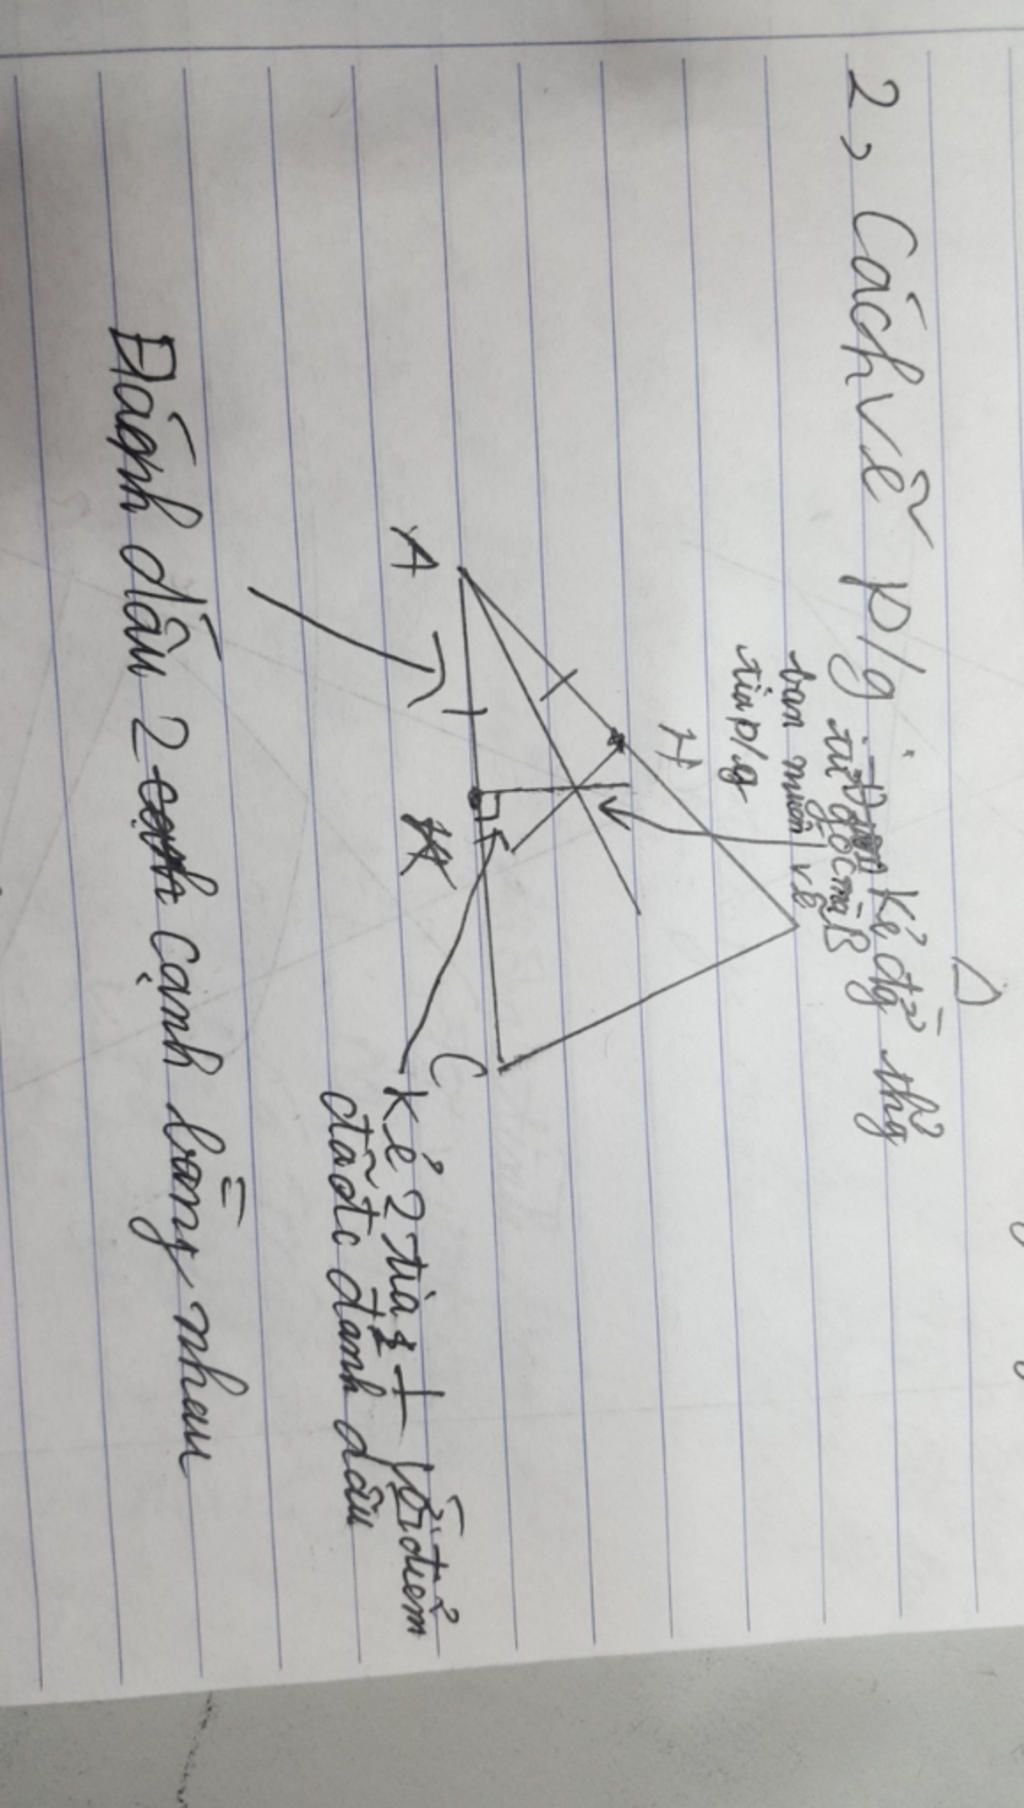 2, Cách vẽ p/g : Kẻ đg thg
từ góc mà
bạn muốn vẽ
tia p/g
B
H
A
K
C
kẻ 2 tia ⊥ với điểm
đã đc đánh dấu
Đánh dấu 2 cạnh bằng nhau